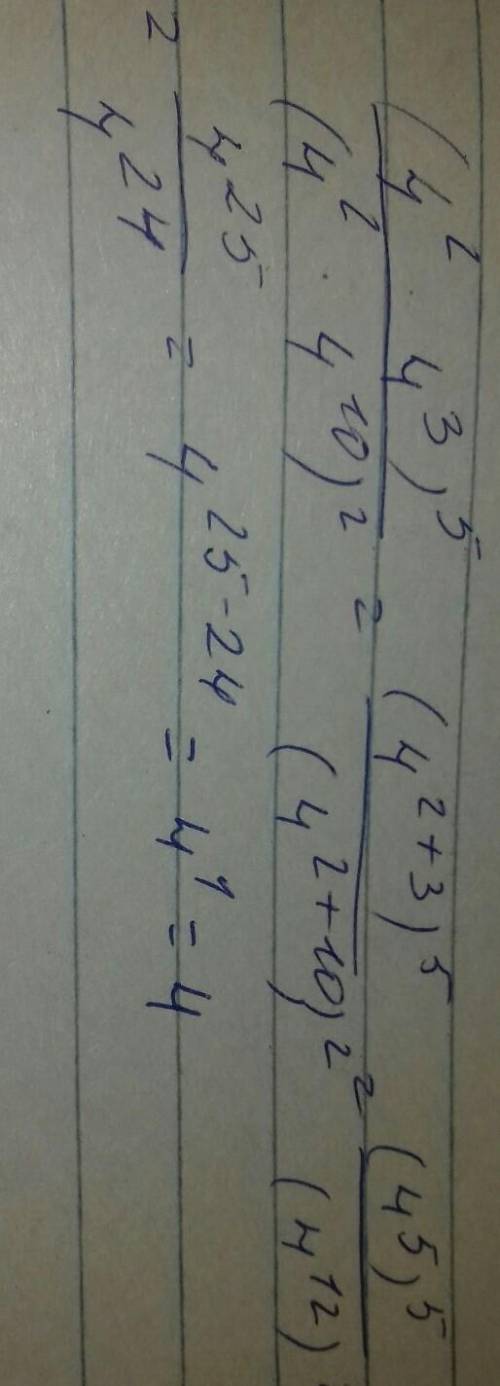 (4² · 4³)⁵ / (4² · 4¹⁰)² = (4²⁺³)⁵ / (4²⁺¹⁰)² = (4⁵)⁵ / (4¹²)
= 4²⁵ / 4²⁴ = 4²⁵⁻²⁴ = 4¹ = 4